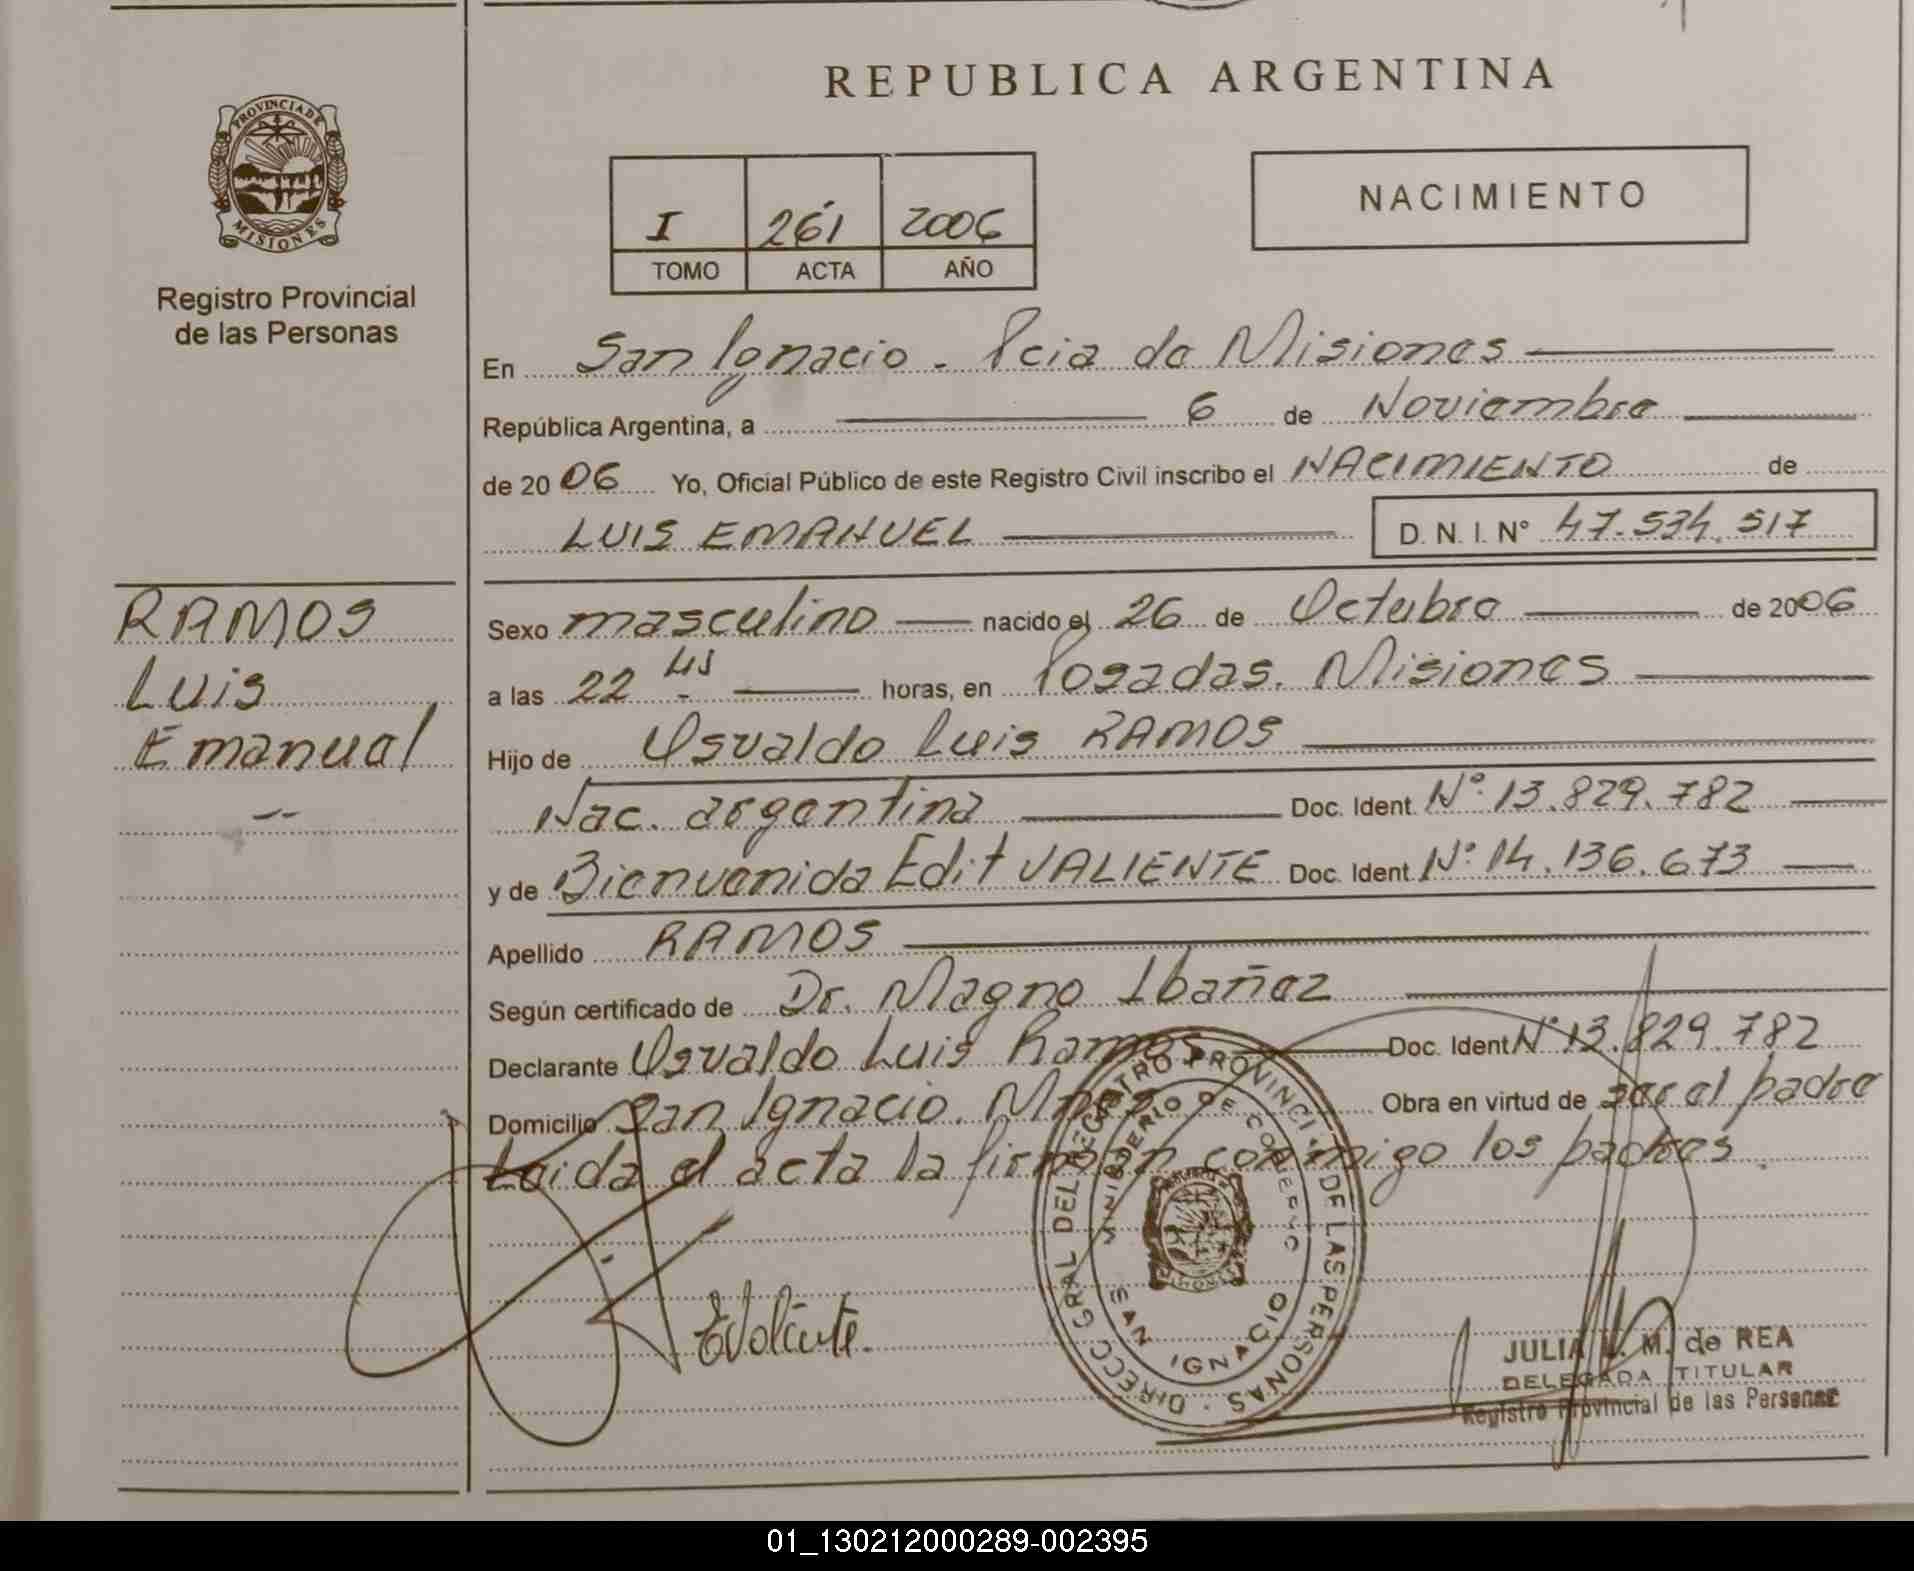 REPUBLICA ARGENTINA
PROVINCIA DE
MISIONES
Registro Provincial
de las Personas
I 261 2006
TOMO ACTA AÑO
NACIMIENTO
En San Ignacio - Pcia de Misiones
República Argentina, a 6 de Noviembre
de 2006 Yo, Oficial Público de este Registro Civil inscribo el NACIMIENTO de
LUIS EMANUEL D. N. I. N° 47.534.517
RAMOS
Luis
Emanuel
Sexo masculino nacido el 26 de Octubre de 2006
a las 22 hs horas, en Posadas. Misiones
Hijo de Osvaldo Luis RAMOS
Nac. argentina Doc. Ident. N° 13.829.782
y de Bienvenida Edit VALIENTE Doc. Ident. N° 14.136.673
Apellido RAMOS
Según certificado de Dr. Magno Ibañez
Declarante Osvaldo Luis Ramos Doc. Ident N° 13.829.782
Domicilio San Ignacio. Mnes Obra en virtud de ser el padre
Leida el acta la firman conmigo los padres.
DIRECC GRAL DEL REGISTRO PROVINCIAL DE LAS PERSONAS
MINISTERIO DE GOBIERNO
SAN IGNACIO
EValiente.
JULIA M. de REA
DELEGADA TITULAR
Registro Provincial de las Personas
01_130212000289-002395